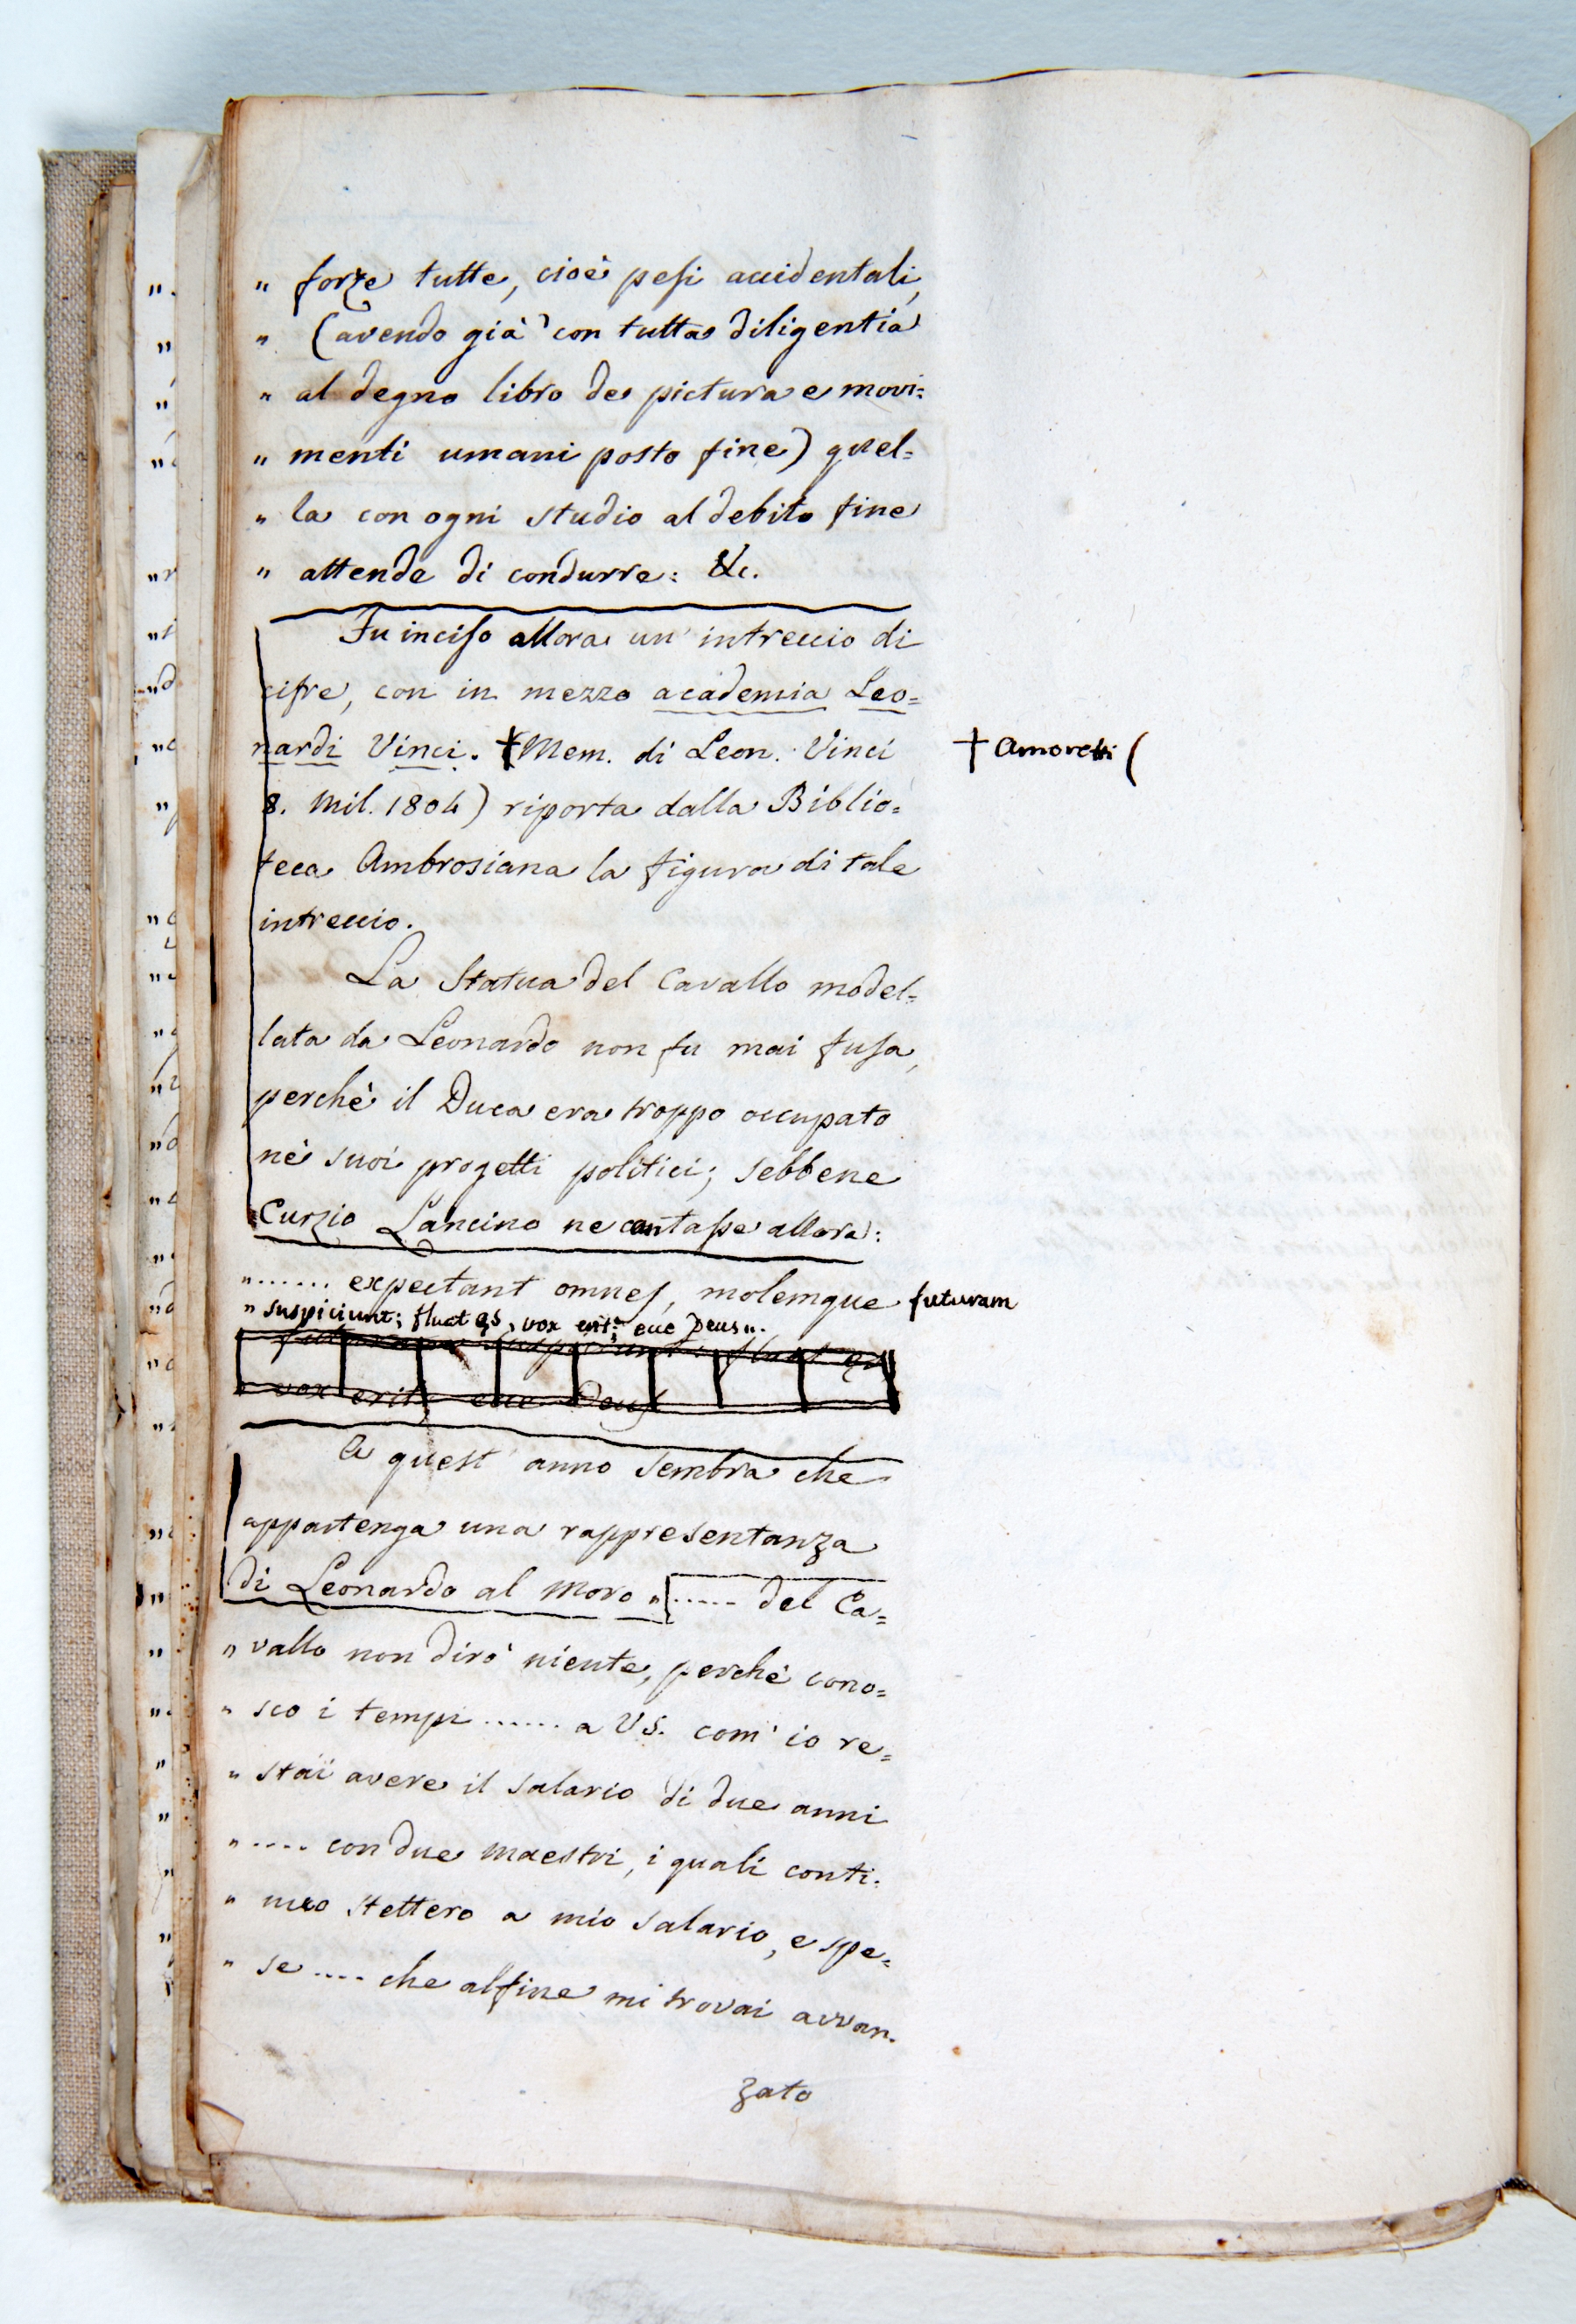 " forze tutte, cioè pesi accidentali,
" (avendo già con tutta diligentia
" al degno libro de pictura e movi=
" menti umani posto fine) quel=
" la con ogni studio al debito fine
" attende di condurre: &c.
Fu inciso allora un' intreccio di
cifre, con in mezzo academia Leo=
nardi Vinci. † Mem. di Leon. Vinci
† Amoretti (
8. Mil. 1804) riporta dalla Biblio=
teca Ambrosiana la figura di tale
intreccio.
La Statua del Cavallo model=
lata da Leonardo non fu mai fusa,
perchè il Duca era troppo occupato
nè suoi progetti politici; sebbene
Curzio Lancino ne cantasse allora:
"...... expectant omnes, molemque futuram
" suspiciunt; fluat æs, vox erit: ecce Deus".
futuram suspiciunt: fluat æs
vox erit, ecce Deus
A quest' anno sembra che
appartenga una rappresentanza
di Leonardo al Moro "..... del Ca=
" vallo non dirò niente, perchè cono=
" sco i tempi ...... a VS. com' io re=
" stai avere il salario di due anni
" .... con due maestri, i quali conti=
" nuo stettero a mio salario, e spe=
" se .... che alfine mi trovai avvan=
zato